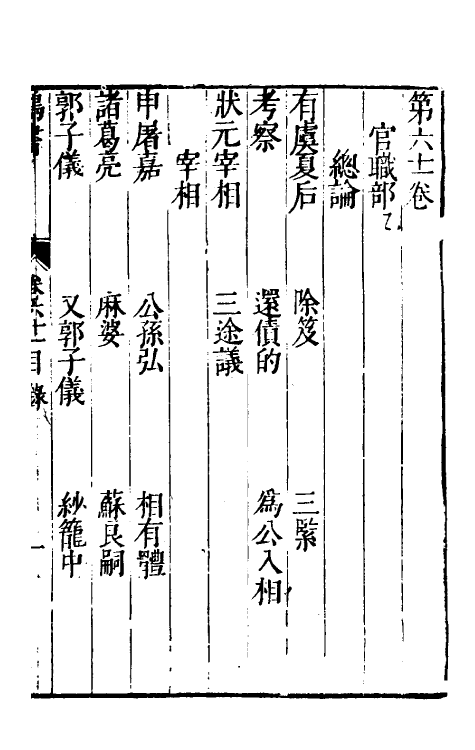 第六十一卷
官職部乙
總論
有虞夏后 除笈 三緊
考察 還債的 爲公入相
狀元宰相 三途議
宰相
申屠嘉 公孫弘 相有體
諸葛亮 麻婆 蘇良嗣
郭子儀 又郭子儀 紗籠中
鴻書 卷六十一目錄 一